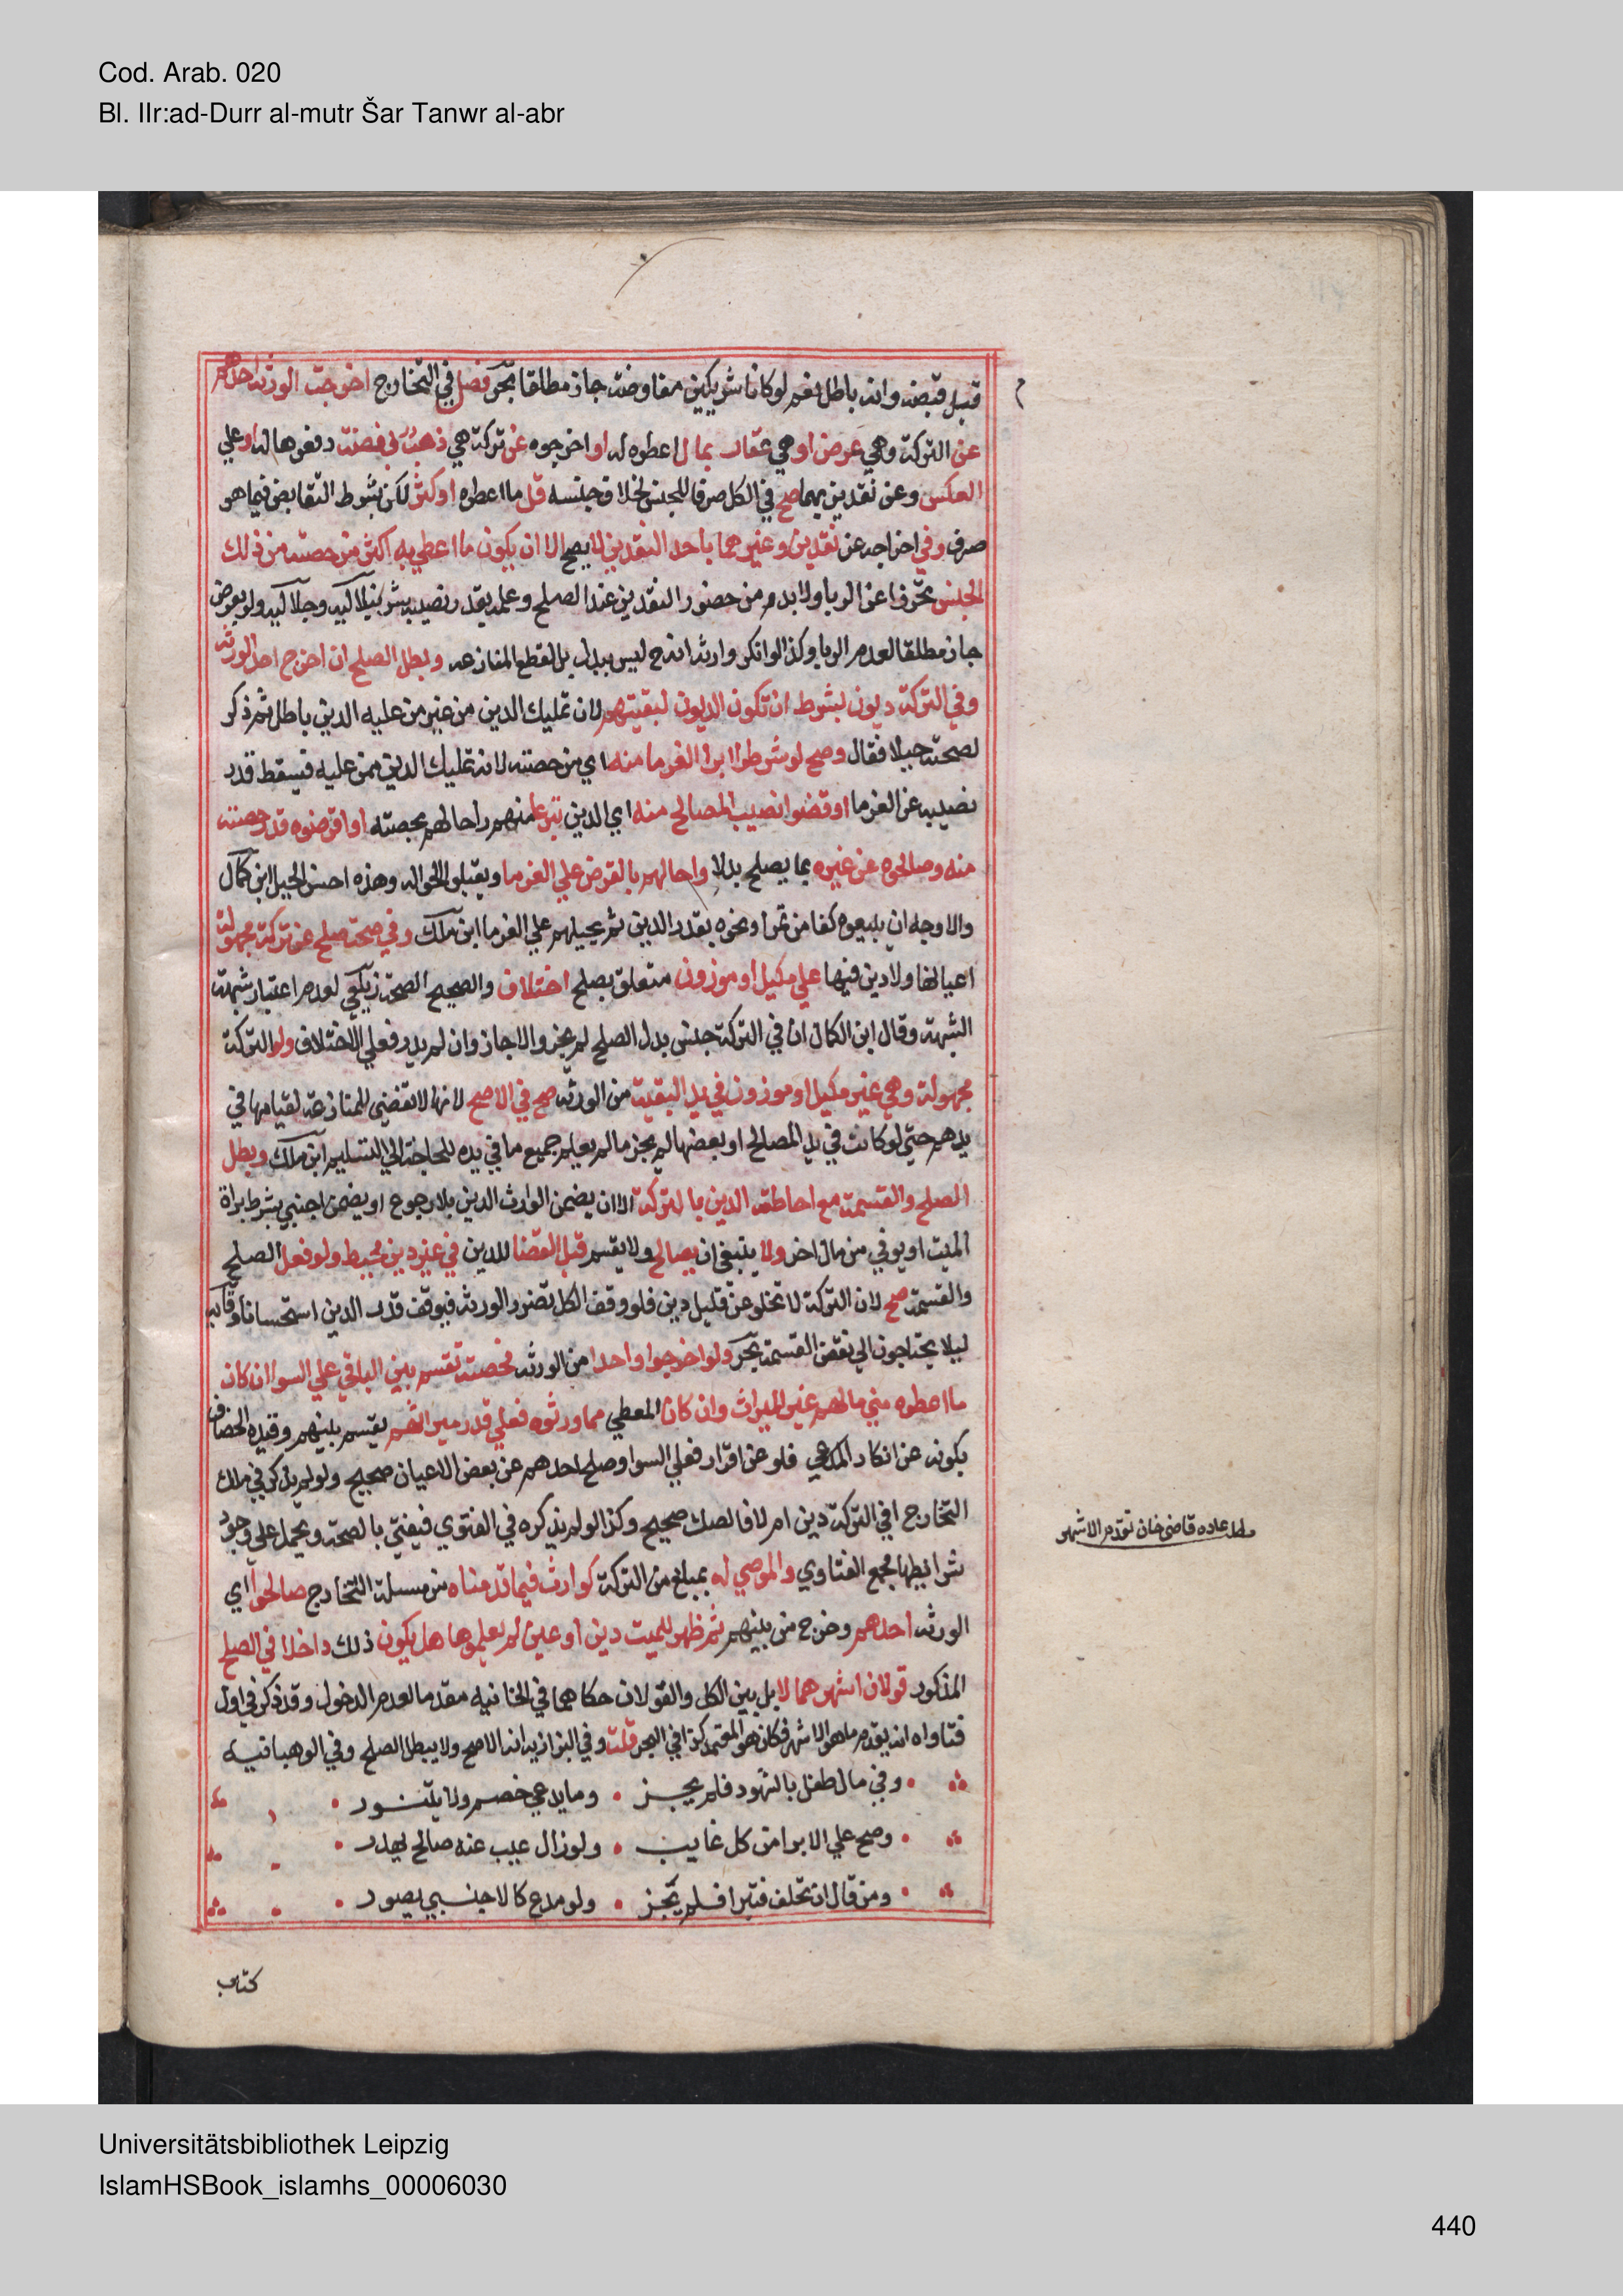 Cod. Arab. 020
Bl. IIr:ad-Durr al-mutr Šar Tanwr al-abr
قبل قبضه وانه باطل نعم لو كانا شريكين مفاوضة جاز مطلقا بحر فصل في التخارج اخرجت الورثة احدهم
عن التركة وهي عرض او هي عقار بمال اعطوه له او اخرجوه عن تركة هي ذهب بفضة دفعوها له او على
العكس وعن نقدين بهما صح في الكل صرفا للجنس لخلاف جنسه قل ما اعطوه او كثر لكن بشرط التقابض فيما هو
صرف وفي اخراجه عن نقدين وغيرهما باحد النقدين لا يصح الا ان يكون ما اعطي به اكثر من حصته من ذلك
الجنس تحرزا عن الربا ولا بد من حضور النقدين عند الصلح وعلمه بقدر نصيبه شرنبلاليه وجلاليه ولو بعرض
جاز مطلقا لعدم الربا وكذا لو انكروا ارثه انه ح ليس ببدل بل لقطع المنازعه وبطل الصلح ان اخرج احد الورثة
وفي التركة ديون بشرط ان تكون الديون لبقيتهم لان تمليك الدين من غير من عليه الدين باطل ثم ذكر
لصحته حيلا فقال وصح لو شرطوا ابرا الغرما منه اي من حصته لانه تمليك الدين ممن عليه فيسقط قدر
نصيبه عن الغرما او قضوا نصيب المصالح منه اي الدين تبرعا منهم واحالهم بحصته او اقرضوه قدر حصته
منه وصالحوه عن غيره بما يصلح بدلا واحالهم بالقرض علي الغرما ويقبلوا الحواله وهذه احسن الحيل ابن كمال
والاوجه ان يبيعوه كفا من تمر او نحوه بقدر الدين ثم يحيلهم علي الغرما ابن ملك وفي صحة صلح عن تركة مجهولة
اعيانها ولا دين فيها علي مكيل او موزون متعلق بصلح اختلاف والصحيح الصحة زيلعي لعدم اعتبار شبهة
الشبهة وقال ابن الكمال ان في التركة جنس بدل الصلح لم يجز والا جاز وان لم يدر فعلي الاختلاف ولو التركة
مجهولة وهي غير مكيل او موزون في يد البقية من الورثة صح في الاصح لانها لا تفضي للمنازعة لقيامها في
يدهم حتي لو كانت في يد المصالح او بعضها لم يجز ما لم يعلم جميع ما في يده للحاجة الي التسليم ابن ملك وبطل
الصلح والقسمة مع احاطة الدين بالتركة الا ان يضمن الوارث الدين بلا رجوع او يضمن اجنبي بشرط براة
الميت او يوفي من مال اخر ولا ينبغي ان يصالح ولا يقسم قبل القضا للدين في غير دين محيط ولو فعل الصلح
والقسمة صح لان التركة لا تخلو عن قليل دين فلو وقف الكل تضرر الورثة فيوقف قدر الدين استحسانا وقايه
ليلا يحتاجون الي نقض القسمة بحر ولو اخرجوا واحدا من الورثه فحصته تقسم بين الباقي علي السوا ان كان
ما اعطوه من مالهم غير الميراث وان كان المعطي مما ورثوه فعلي قدر ميراثهم يقسم بينهم وقيده الخصاف
بكونه عن انكار المدعي فلو عن اقرار فعلي السوا وصلح احدهم عن بعض الاعيان صحيح ولو لم يذكر في صك
التخارج افي التركة دين ام لا فالصك صحيح وكذا لو لم يذكره في الفتوي فيفتي بالصحة ويحمل علي وجود
شرايطها مجمع الفتاوي والموصي له بمبلغ من التركة كوارث فيما قدمناه من مسيلة التخارج صالحوا اي
الورثه احدهم وخرج من بينهم ثم ظهر للميت دين او عين لم يعلموها هل يكون ذلك داخلا في الصلح
المذكور قولان اشهرهما لا بل بين الكل والقولان حكاهما في الخانيه مقدما لعدم الدخول وقد ذكر في اول
فتاواه انه يقدم ما هو الاشهر فكان هو المعتمد كذا في البحر قلت وفي البزازيه انه الاصح ولا يبطل الصلح وفي الوهبانيه
وفي مال طفل بالشهود فلم يجز وما يدعي خصم ولا يتنور
وصح علي الابرا من كل غايب ولو زال عيب عنه صالح يهدر
ومن قال ان تحلف فتبرا فلم يجز ولو مدع كالاجنبي يصور
كتاب
مطلب عادة قاضي خان تقدم الاشهر
Universitätsbibliothek Leipzig
IslamHSBook_islamhs_00006030
440